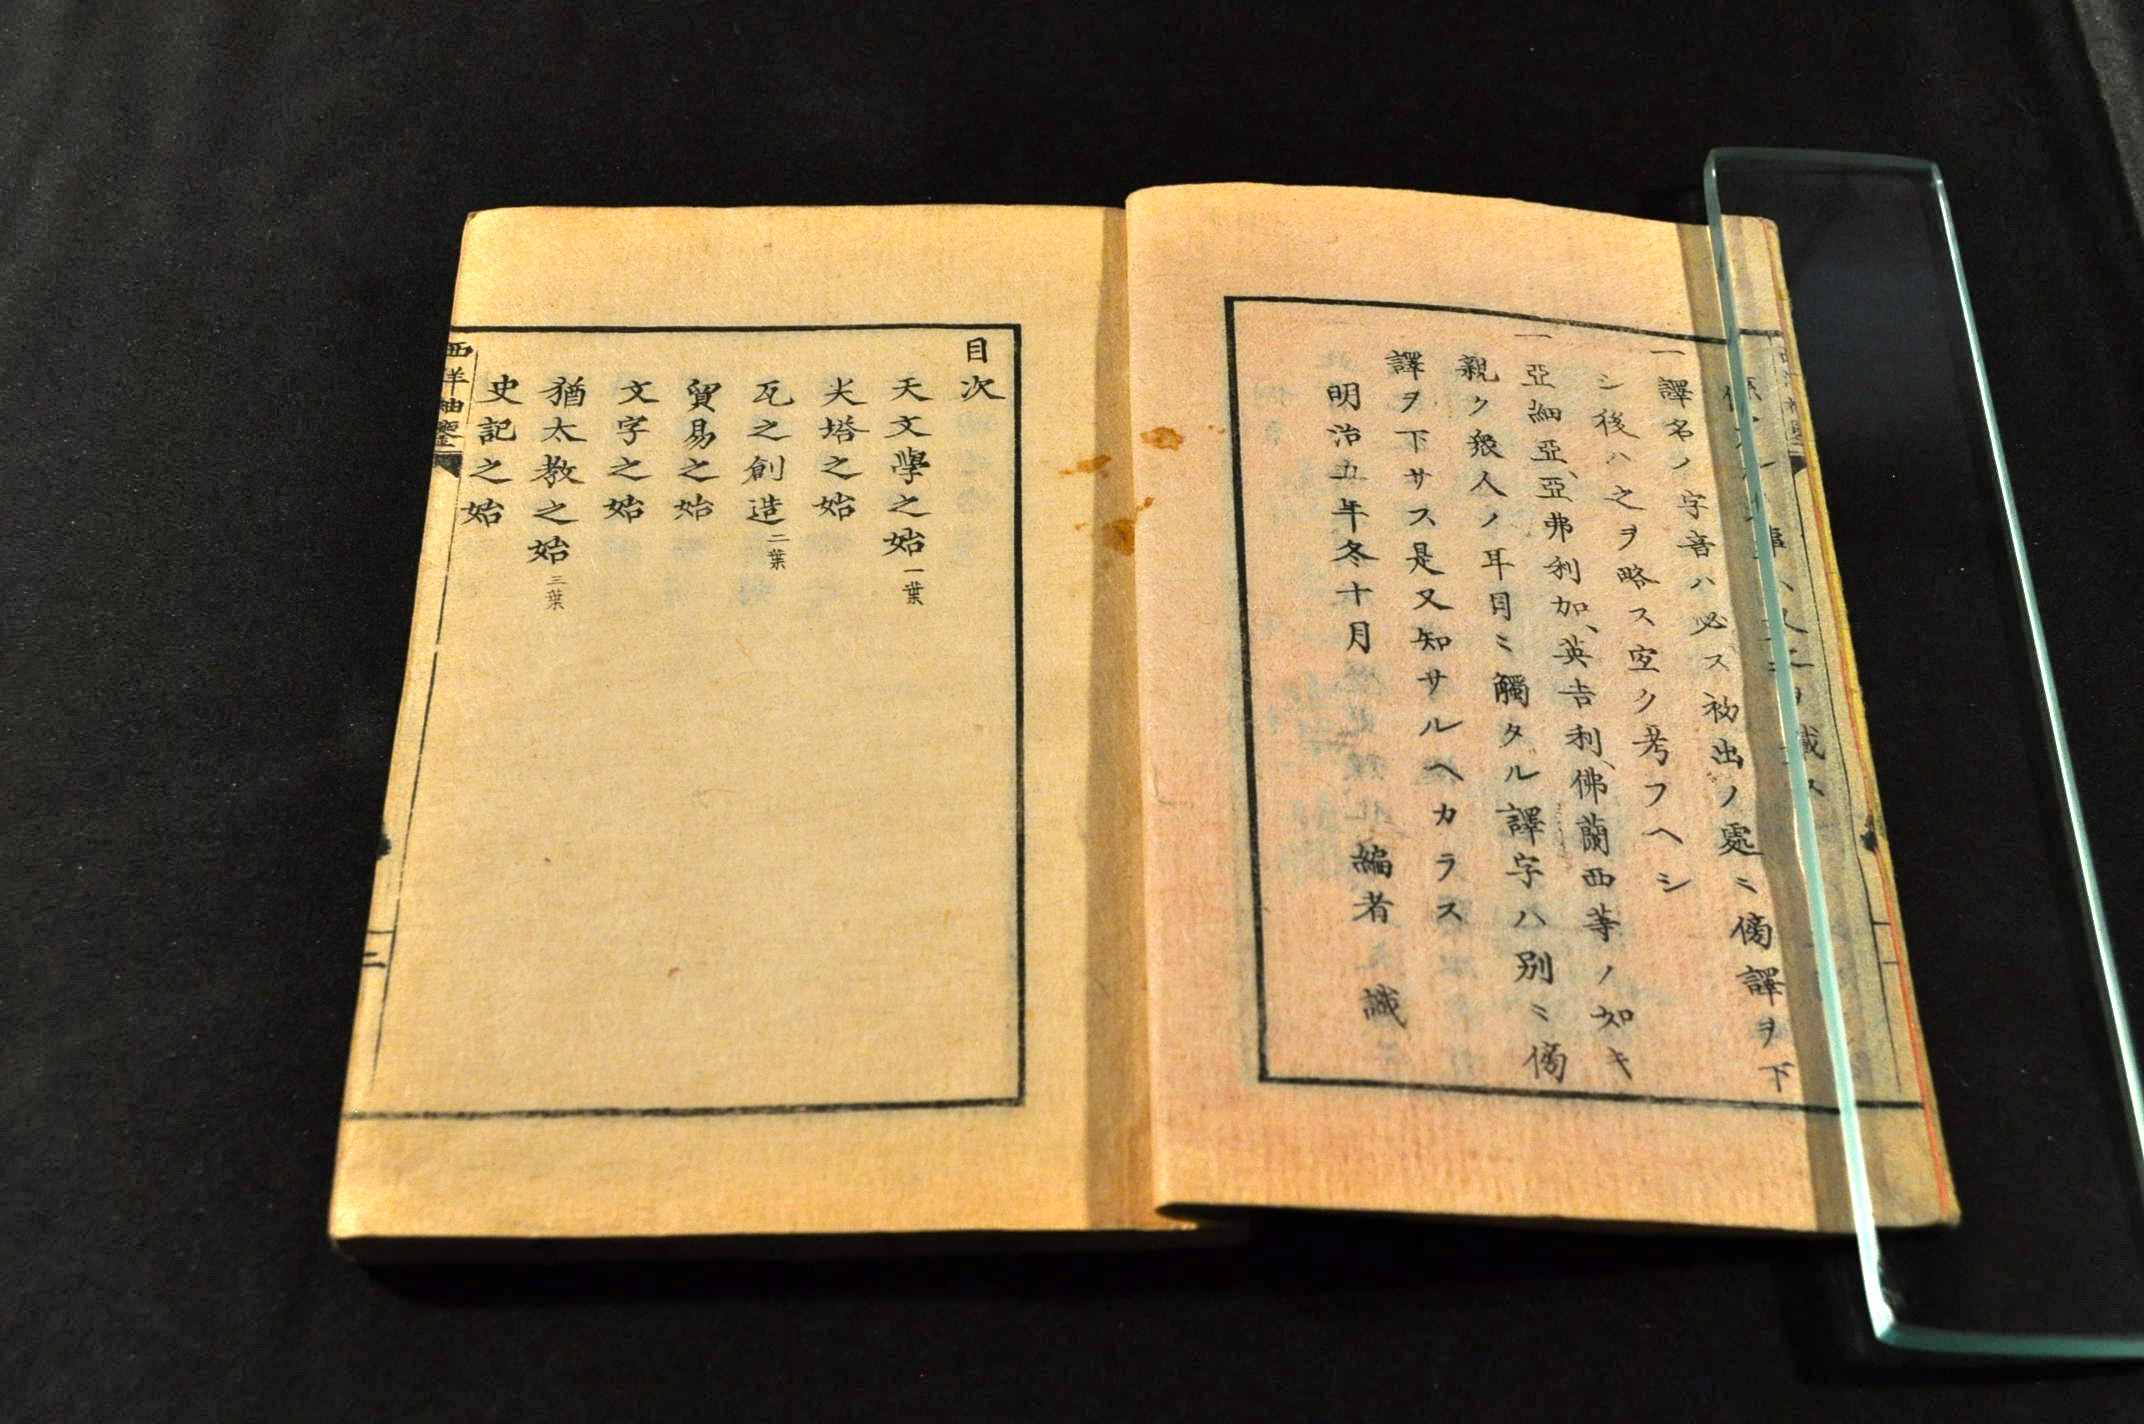 一譯名ノ字音ハ必ス初出ノ處ニ傍譯ヲ下
シ後ハ之ヲ略ス空ク考フヘシ
一亞細亞、亞弗利加、英吉利、佛蘭西等ノ如キ
親ク衆人ノ耳目ニ觸タル譯字ハ別ニ傍
譯ヲ下サス是又知サルヘカラス
明治五年冬十月 編者 識
目次
天文學之始 一葉
尖塔之始
瓦之創造 二葉
貿易之始
文字之始
猶太教之始 三葉
史記之始
西洋袖鑒
二